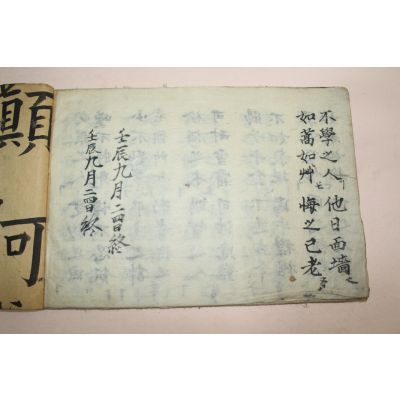 不學之人 他日面墻
如蒿如艸 悔之已老
壬辰九月二四日終
壬辰九月二四日終
顚
何